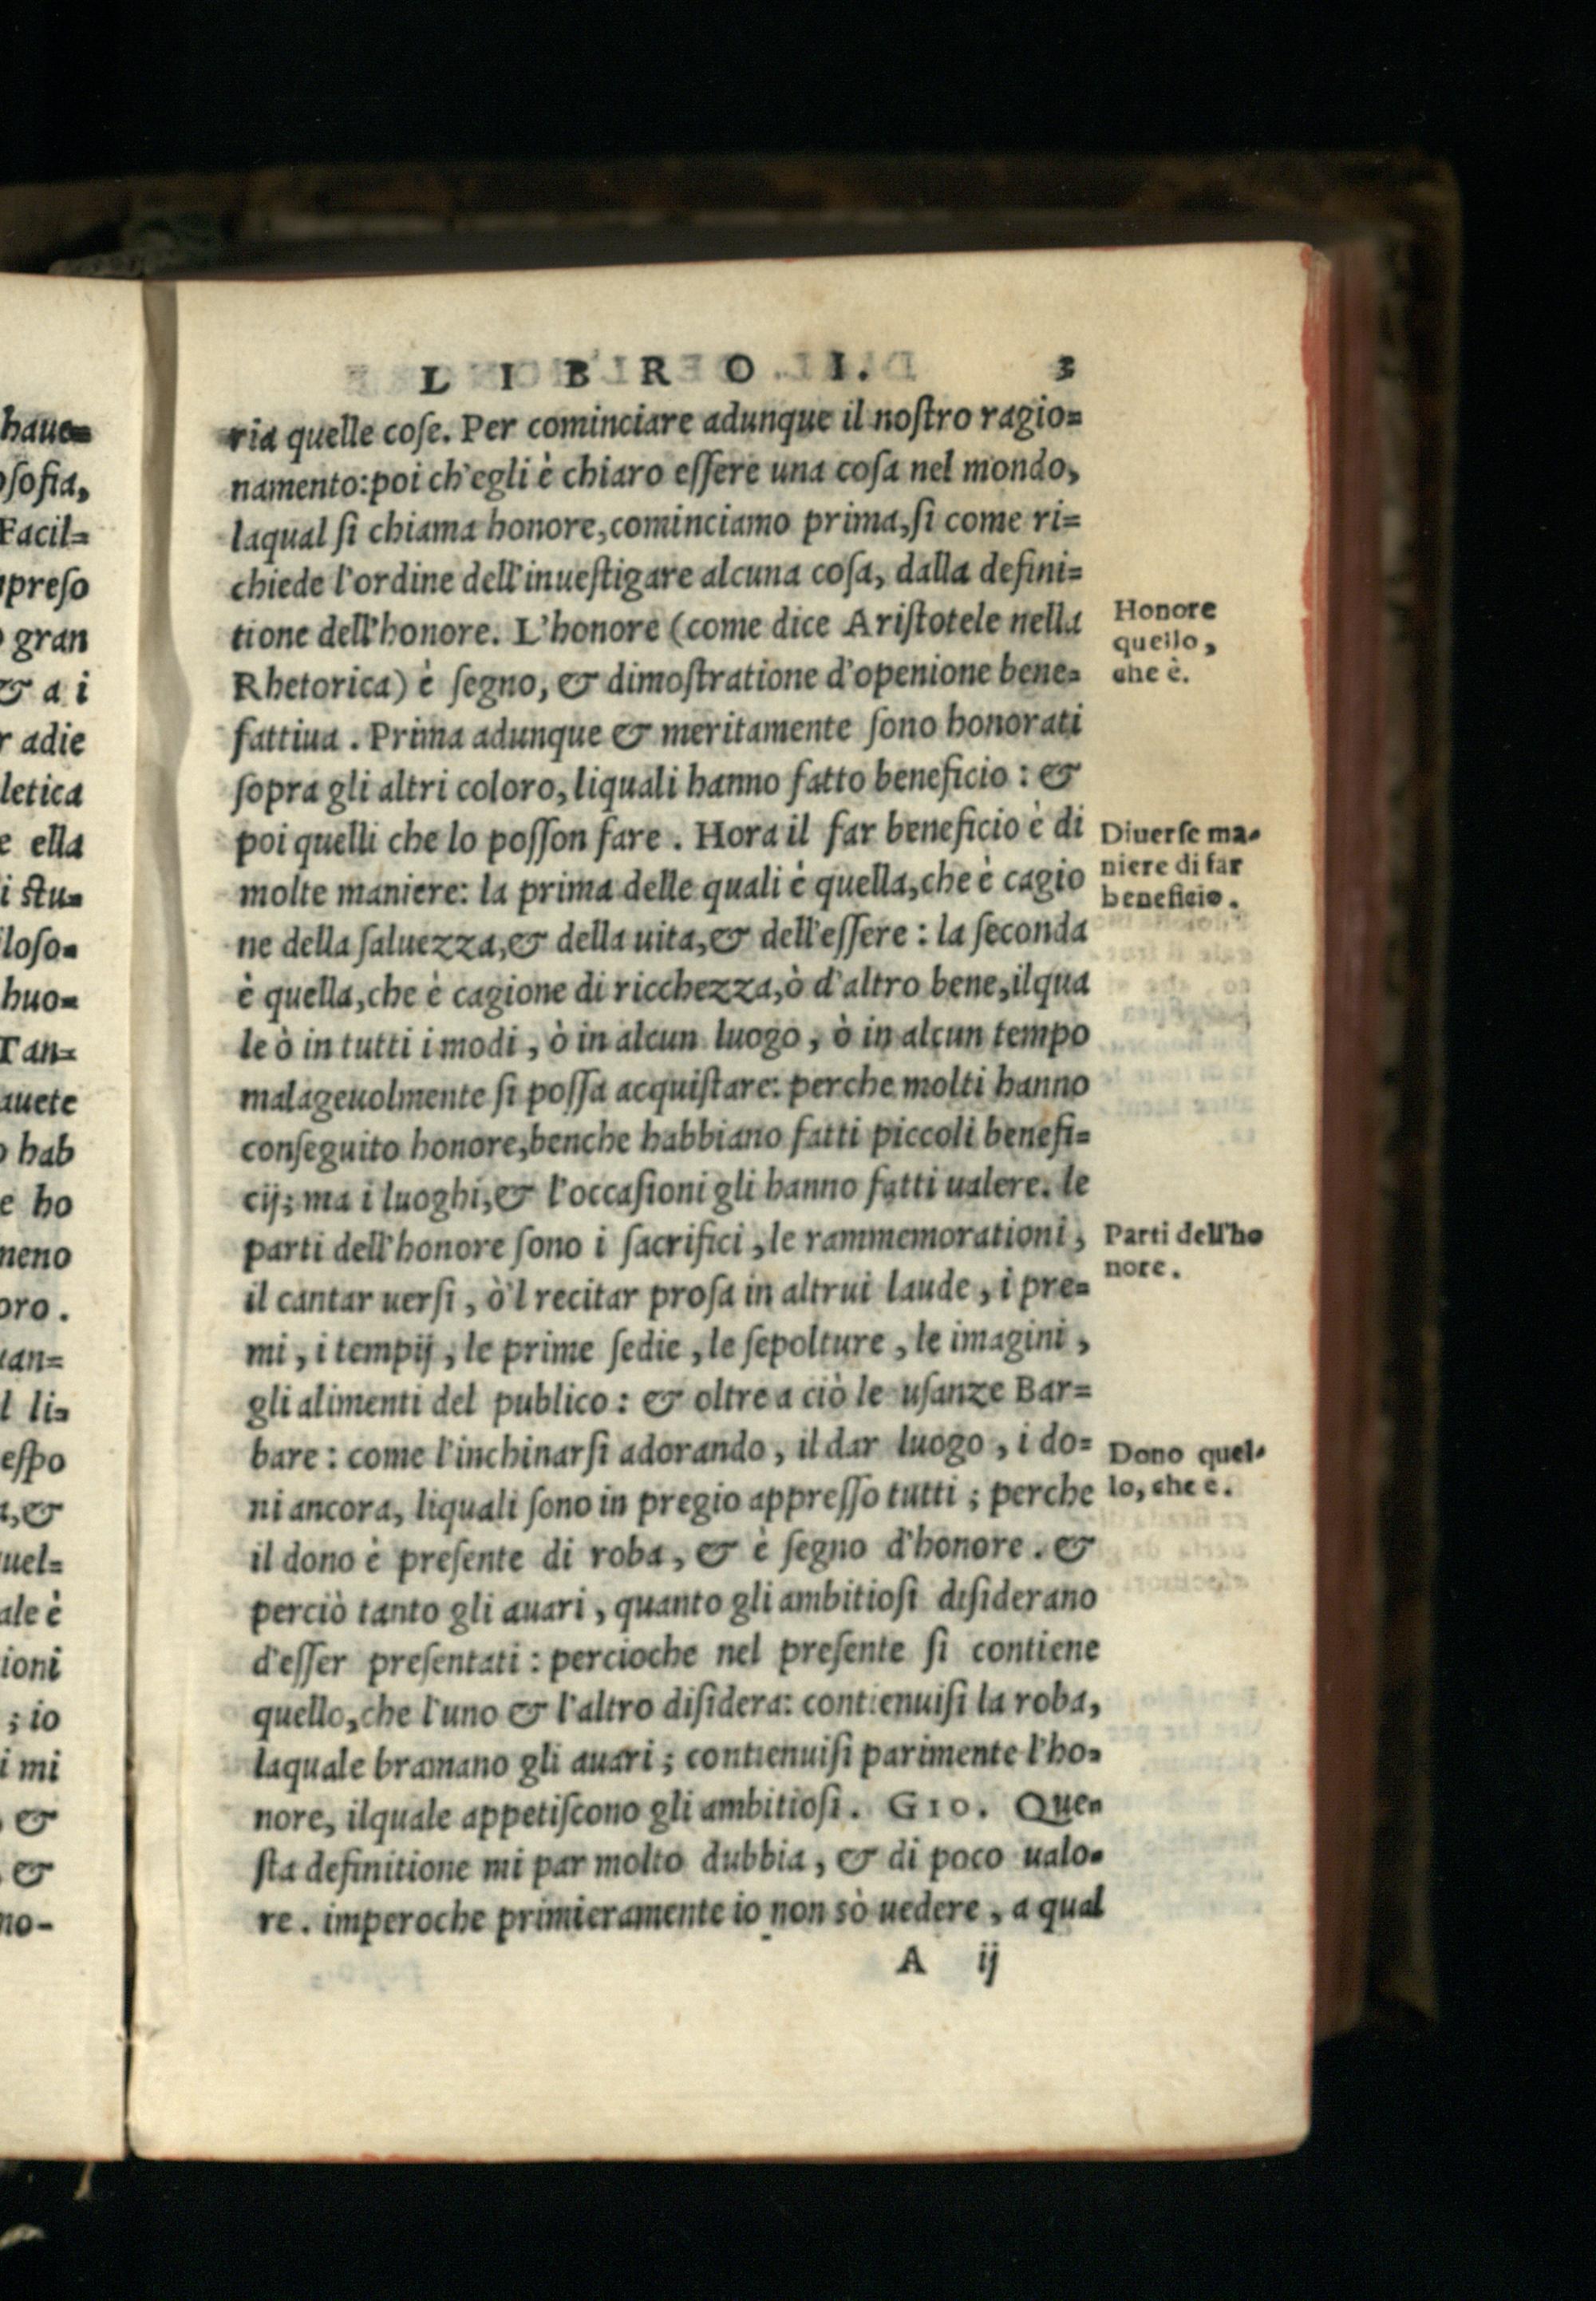 LIBRO I. 3
ria quelle coſe. Per cominciare adunque il noſtro ragio=
namento: poi ch'egli è chiaro eſſere una coſa nel mondo,
laqual ſi chiama honore, cominciamo prima, ſi come ri=
chiede l'ordine dell'inueſtigare alcuna coſa, dalla defini=
tione dell'honore. L'honore (come dice Ariſtotele nella
Rhetorica) è ſegno, & dimoſtratione d'openione bene=
fattiua. Prima adunque & meritamente ſono honorati
ſopra gli altri coloro, liquali hanno fatto beneficio: &
poi quelli che lo poſſon fare. Hora il far beneficio è di
molte maniere: la prima delle quali è quella, che è cagio
ne della ſaluezza, & della uita, & dell'eſſere: la ſeconda
è quella, che è cagione di ricchezza, ò d'altro bene, ilqua
le ò in tutti i modi, ò in alcun luogo, ò in alcun tempo
malageuolmente ſi poſſa acquiſtare: perche molti hanno
conſeguito honore, benche habbiano fatti piccoli benefi=
cij; ma i luoghi, & l'occaſioni gli hanno fatti ualere. le
parti dell'honore ſono i ſacrifici, le rammemorationi,
il cantar uerſi, ò'l recitar proſa in altrui laude, i pre=
mi, i tempij, le prime ſedie, le ſepolture, le imagini,
gli alimenti del publico: & oltre a ciò le uſanze Bar=
bare: come l'inchinarſi adorando, il dar luogo, i do=
ni ancora, liquali ſono in pregio appreſſo tutti; perche
il dono è preſente di roba, & è ſegno d'honore. &
perciò tanto gli auari, quanto gli ambitioſi diſiderano
d'eſſer preſentati: percioche nel preſente ſi contiene
quello, che l'uno & l'altro diſidera: contienuiſi la roba,
laquale bramano gli auari; contienuiſi parimente l'ho=
nore, ilquale appetiſcono gli ambitioſi. GIO. Que=
ſta definitione mi par molto dubbia, & di poco ualo=
re. imperoche primieramente io non sò uedere, a qual
A ij
Honore
quello,
che è.
Diuerſe ma=
niere di far
beneficio.
Parti dell'ho
nore.
Dono quel=
lo, che è.
haue=
ſofia,
Facil=
preſo
gran
& a i
adie
letica
ella
i ſtu=
loſo=
huo=
Tan=
auete
hab
e ho
meno
oro.
an=
l li=
eſpo
, &
uel=
ale è
ioni
; io
i mi
, &
&
no-